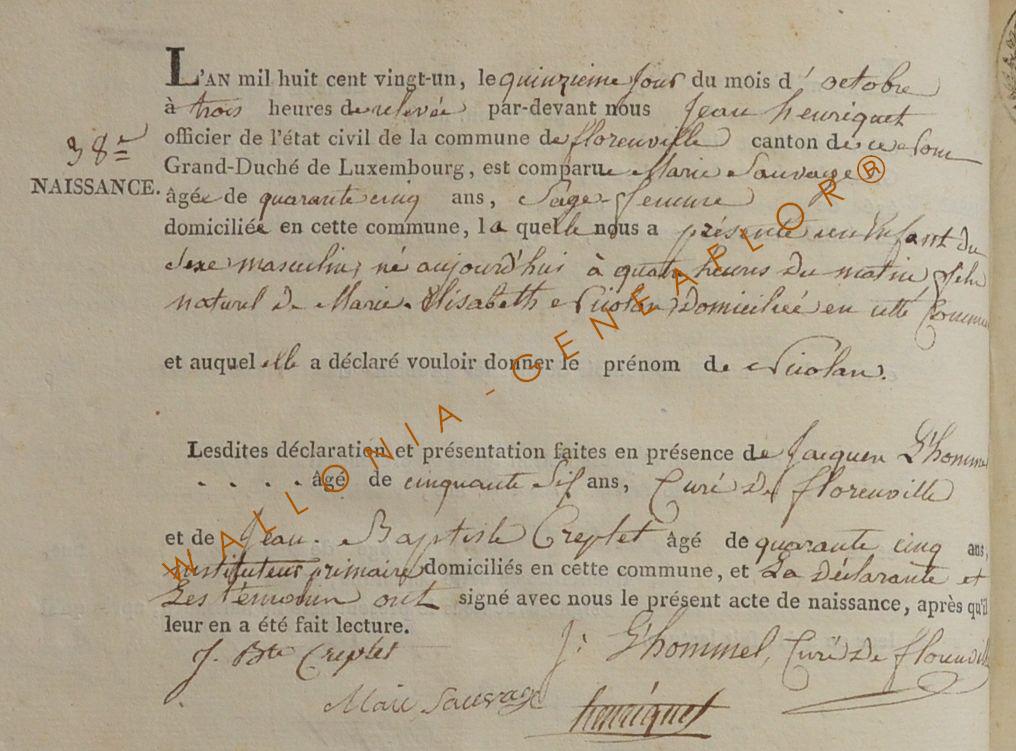 L'AN mil huit cent vingt-un, le quinzieme jour du mois d' octobre
à trois heures de relevée par-devant nous Jean henriquet
officier de l'état civil de la commune de florenville canton de ce nom
38e
NAISSANCE.
Grand-Duché de Luxembourg, est comparue Marie Sauvage
âgée de quarante cinq ans, Sage-femme
domiciliée en cette commune, la quelle nous a présenté un Enfant du
Sexe masculin, né aujourd'hui à quatre heures du matin, fils
naturel de Marie Elisabeth Nicolas, Domiciliée en cette Commune
et auquel elle a déclaré vouloir donner le prénom de Nicolas.
Lesdites déclaration et présentation faites en présence de Jacques L'hommel
. . . . âgé de cinquante Six ans, Curé de florenville
et de Jean Baptiste Creplet âgé de quarante cinq ans,
instituteur primaire domiciliés en cette commune, et La déclarante et
Les témoins ont signé avec nous le présent acte de naissance, après qu'il
leur en a été fait lecture.
J. Bte Creplet
J: L'hommel, Curé De florenville
Marie Sauvage
henriquet
WALLONIA - GENEAFLOR®